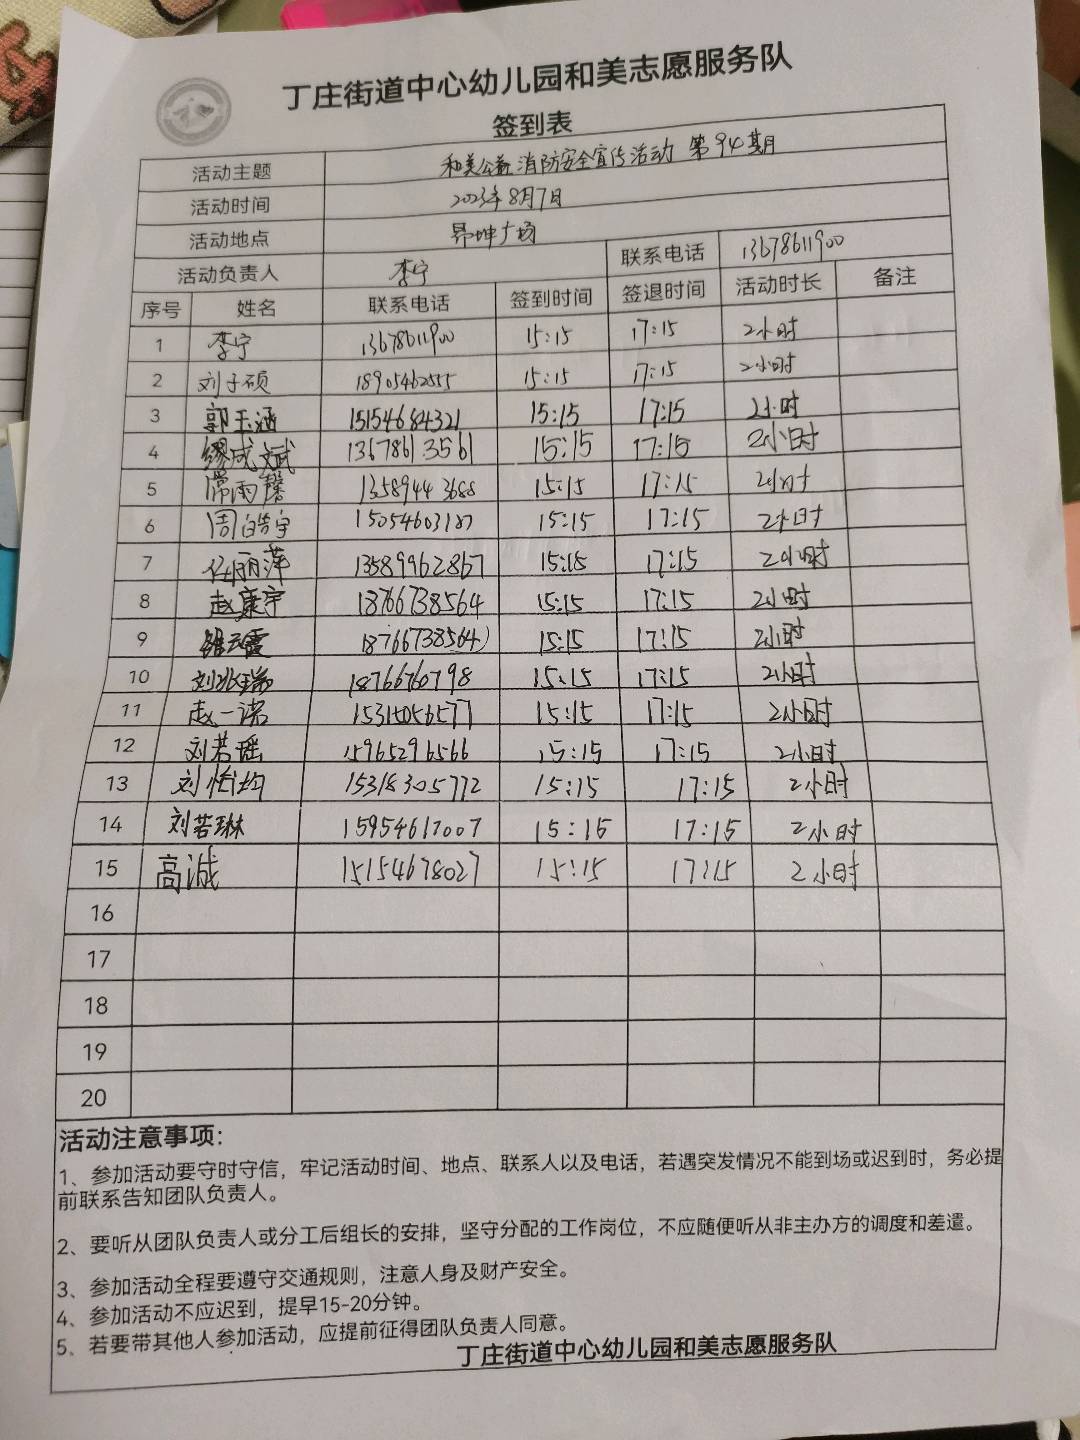 丁庄街道中心幼儿园和美志愿服务队
签到表
活动主题 和美公益 消防安全宣传活动 第94期
活动时间 2023年8月7日
活动地点 昂坤广场
活动负责人 李宁 联系电话 13678611900
序号 姓名 联系电话 签到时间 签退时间 活动时长 备注
1 李宁 13678611900 15:15 17:15 2小时
2 刘子硕 18905462555 15:15 17:15 2小时
3 郭玉涵 15154684321 15:15 17:15 2小时
4 缪成斌 13678613561 15:15 17:15 2小时
5 常雨馨 13589443688 15:15 17:15 2小时
6 周皓宇 15054603187 15:15 17:15 2小时
7 任丽萍 13589962867 15:15 17:15 2小时
8 赵康宇 18766738564 15:15 17:15 2小时
9 18766738564 15:15 17:15 2小时
10 18766760798 15:15 17:15 2小时
11 赵一诺 15315056577 15:15 17:15 2小时
12 刘若瑶 15965296566 15:15 17:15 2小时
13 刘怡均 15318305772 15:15 17:15 2小时
14 刘若琳 15954617007 15:15 17:15 2小时
15 高诚 15154678027 15:15 17:15 2小时
16
17
18
19
20
活动注意事项：
1、参加活动要守时守信，牢记活动时间、地点、联系人以及电话，若遇突发情况不能到场或迟到时，务必提
前联系告知团队负责人。
2、要听从团队负责人或分工后组长的安排，坚守分配的工作岗位，不应随便听从非主办方的调度和差遣。
3、参加活动全程要遵守交通规则，注意人身及财产安全。
4、参加活动不应迟到，提早15-20分钟。
5、若要带其他人参加活动，应提前征得团队负责人同意。
丁庄街道中心幼儿园和美志愿服务队